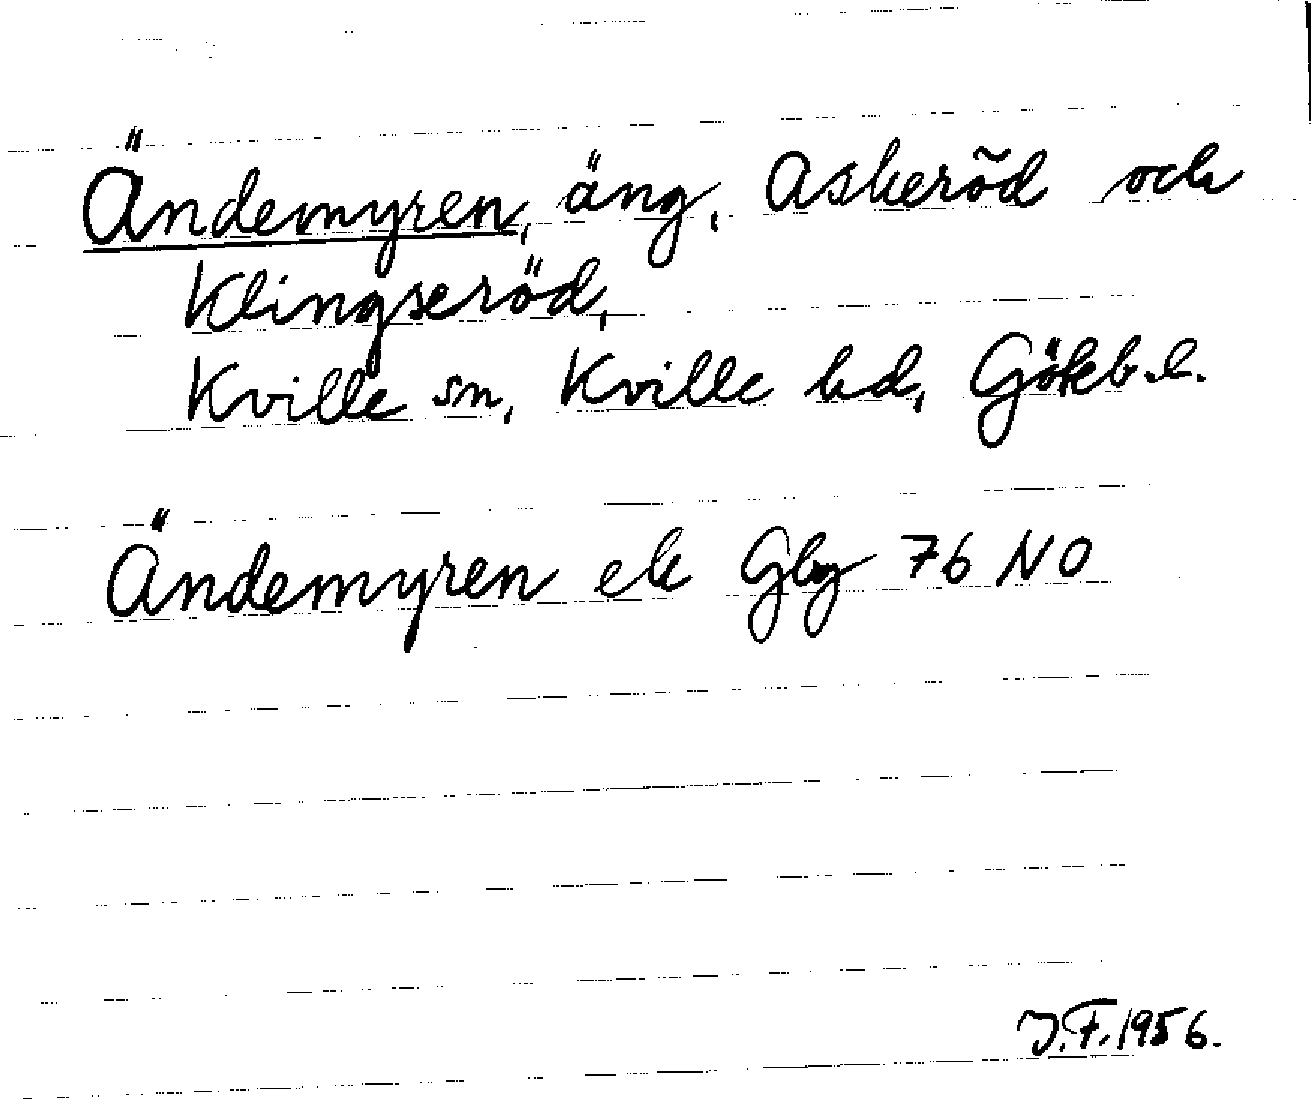 Ändemyren, äng, Askeröd och
Klingseröd,
Kville sn, Kville hd, Göteb.l.
Ändemyren ek Gbg 76 NO
J.F. 1956.